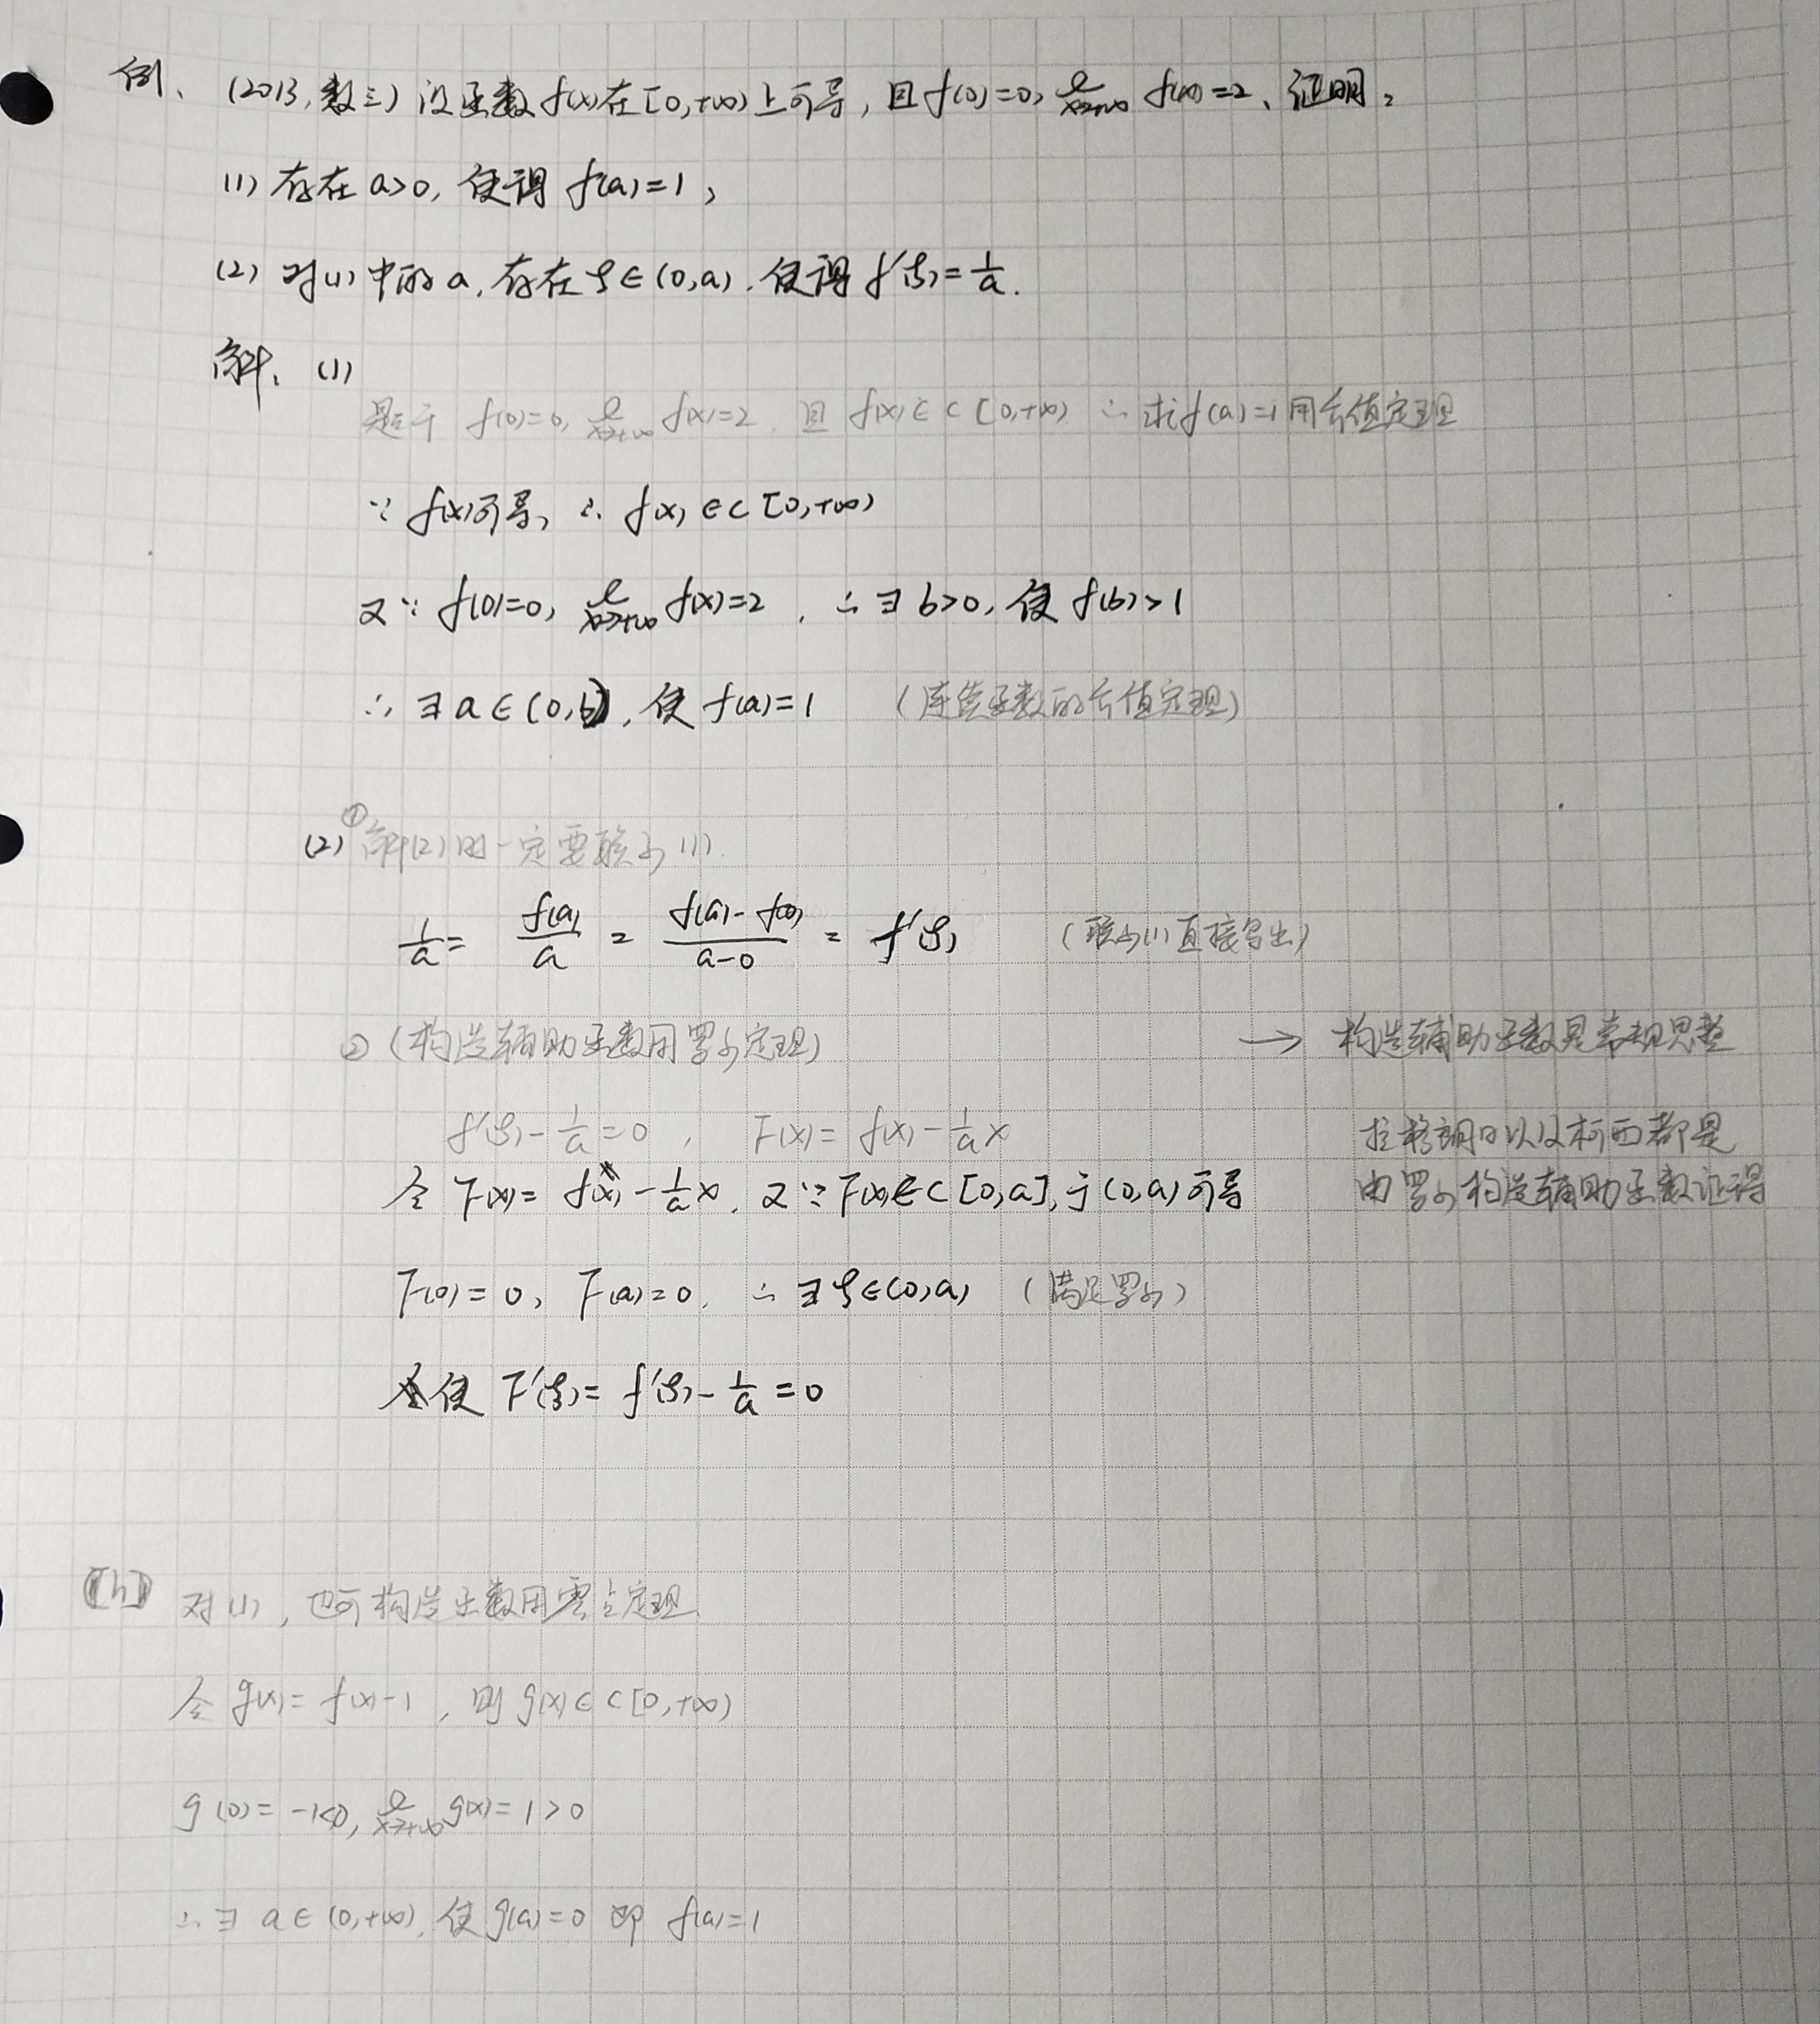 例、(2013,数三) 设函数f(x)在[0,+∞)上可导，且f(0)=0, l x→+∞ f(x)=2、证明，
(1) 存在a>0, 使得 f(a)=1，
(2) 对(1)中的a, 存在ξ∈(0,a), 使得f'(ξ)=1/a.
解、(1)
f(0)=0, l x→+∞ f(x)=2, 且 f(x)∈C[0,+∞) ∴ 求f(a)=1用介值定理
∵ f(x)可导, ∴ f(x)∈C[0,+∞)
又∵ f(0)=0, l x→+∞ f(x)=2, ∴∃b>0, 使 f(b)>1
∴ ∃a∈(0,b), 使 f(a)=1 (连续函数的介值定理)
(2) ①解(2)时一定要联系(1)
1/a = f(a)/a = (f(a)-f(0))/(a-0) = f'(ξ) (联系(1)直接写出)
② (构造辅助函数用罗尔定理) → 构造辅助函数是常规思路
f'(ξ)-1/a=0, F(x)=f(x)-1/a x 拉格朗日以及柯西都是
令 F(x)=f(x)-1/a x, 又∵F(x)∈C[0,a], 于(0,a)可导 由罗尔构造辅助函数证得
F(0)=0, F(a)=0, ∴∃ξ∈(0,a) (满足罗尔)
使 F'(ξ)=f'(ξ)-1/a=0
[h] 对(1), 也可构造函数用零点定理
令 g(x)=f(x)-1, 则 g(x)∈C[0,+∞)
g(0)=-1<0, l x→+∞ g(x)=1>0
∴∃ a∈(0,+∞), 使g(a)=0 即 f(a)=1